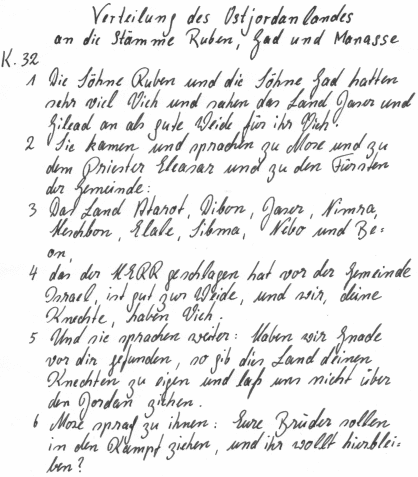 Verteilung des Ostjordanlandes
an die Stämme Ruben, Gad und Manasse
K. 32
1 Die Söhne Ruben und die Söhne Gad hatten
sehr viel Vieh und sahen das Land Jaser und
Gilead an als gute Weide für ihr Vieh.
2 Sie kamen und sprachen zu Mose und zu
dem Priester Eleasar und zu den Fürsten
der Gemeinde:
3 Das Land Atarot, Dibon, Jaser, Nimra,
Heschbon, Elale, Sibma, Nebo und Be=
on,
4 das der HERR geschlagen hat vor der Gemeinde
Israel, ist gut zur Weide, und wir, deine
Knechte, haben Vieh.
5 Und sie sprachen weiter: Haben wir Gnade
vor dir gefunden, so gib dies Land deinen
Knechten zu eigen und laß uns nicht über
den Jordan ziehen.
6 Mose sprach zu ihnen: Eure Brüder sollen
in den Kampf ziehen, und ihr wollt hierblei=
ben?